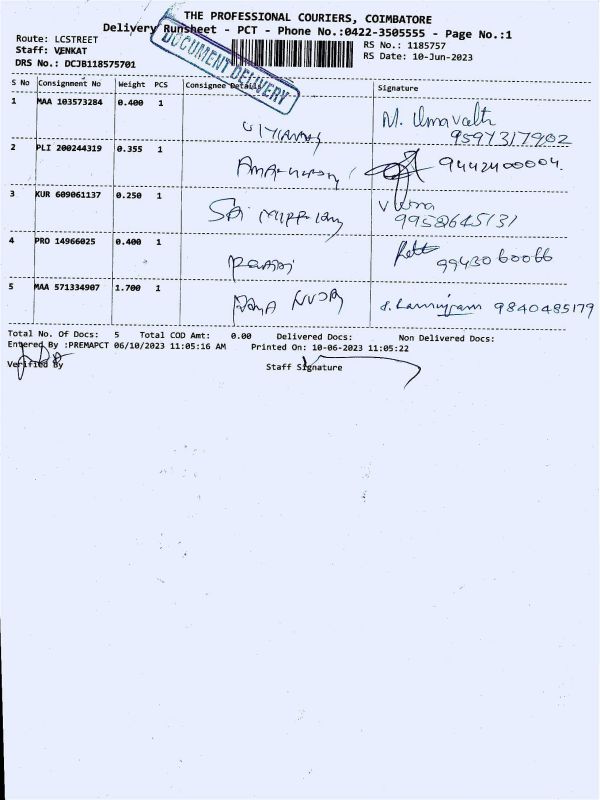 THE PROFESSIONAL COURIERS, COIMBATORE
Delivery Runsheet - PCT - Phone No.:0422-3505555 - Page No.:1
Route: LCSTREET
RS No.: 1185757
Staff: VENKAT
RS Date: 10-Jun-2023
DRS No.: DCJB118575701
DOCUMENT DELIVERY
S No Consignment No Weight PCS Consignee Details Signature
1 MAA 103573284 0.400 1
M. Umavalth
9597317902
2 PLI 200244319 0.355 1
9442400004.
3 KUR 609061137 0.250 1
Sai
9958645131
4 PRO 14966025 0.400 1
9943060066
5 MAA 571334907 1.700 1
9840485179
Total No. Of Docs: 5 Total COD Amt: 0.00 Delivered Docs: Non Delivered Docs:
Entered By :PREMAPCT 06/10/2023 11:05:16 AM Printed On: 10-06-2023 11:05:22
Verified By Staff Signature